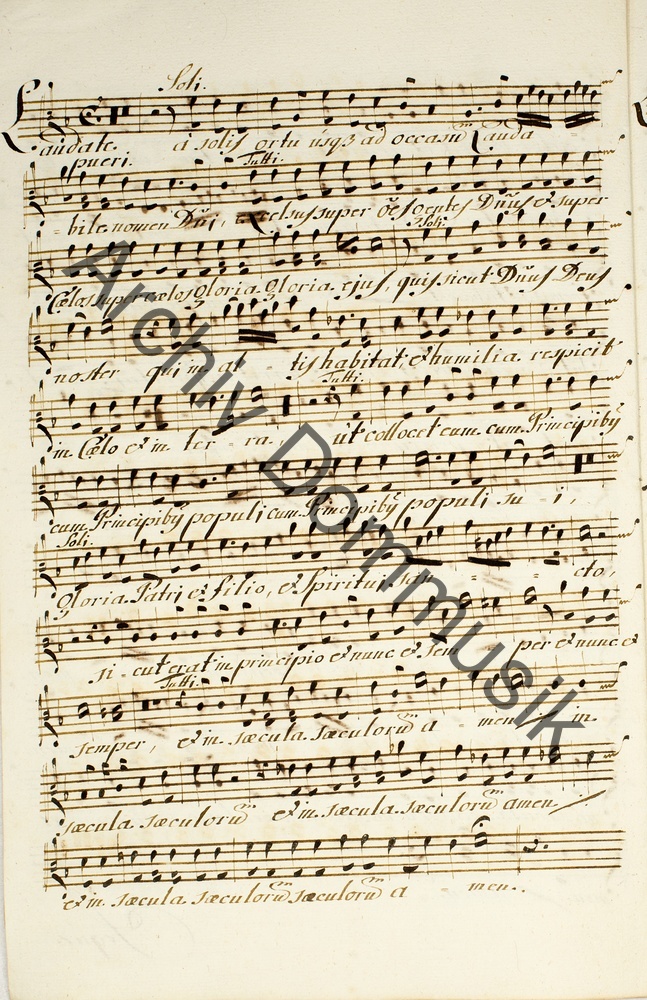 Soli.
Laudate pueri. à solis ortu úsq3 ad occasū Lauda
Tutti.
= bile nomen Dñi, excelsus super oēs gentes Dñus et super
Soli.
Cœlos super cœlos gloria gloria ejus, quis sicut Dñus Deus
noster qui in al - tis habitat, et humilia respicit
Tutti.
in Cœlo et in ter - ra, út collocet eum cum Principibȝ
cum Principibȝ populi cum Principibȝ populi su - i,
Soli.
Gloria Patri et filio, et Spiritui san - - cto,
si - cut erat in principio et nunc et sem - per et nunc et
Tutti.
semper, et in sæcula sæculorū a - men in
sæcula sæculorū et in sæcula sæculorū amen
et in sæcula sæculorū sæculorū a - men..
Archiv Dommusik